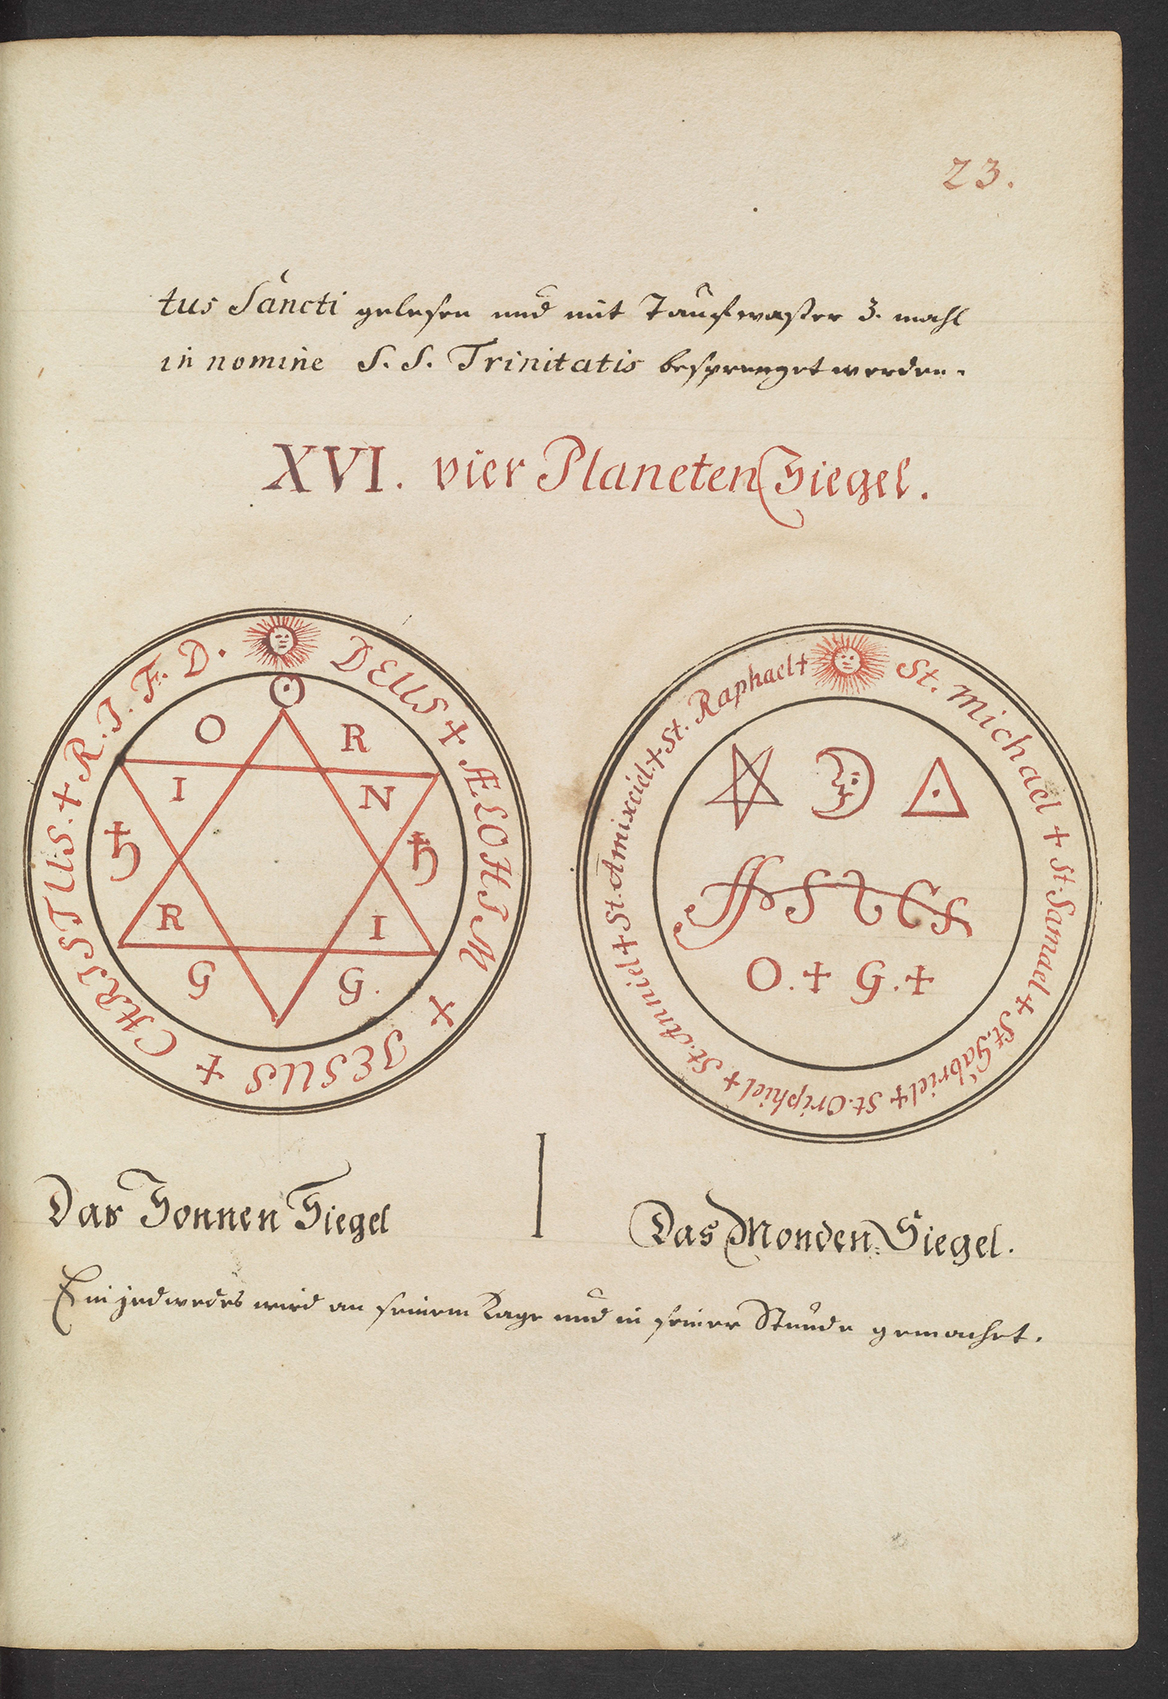 23.
tus Sancti gelesen und mit Tauffwasser 3. mahl
in nomine S. S. Trinitatis besprenget werden.
XVI. vier Planeten Siegel.
DEUS + ÆLOHIM + JESUS + CHRISTUS. + R. J. F. D.
O R
I N
♄ ♄
R I
G G.
St. Michael + St. Samael + St. Gabriel + St. Oriphiel + St. Anniel + St. Amixiel. + St. Raphael +
O. + G. +
Das Sonnen Siegel
Das Monden Siegel.
Ein jedwedes wird an seinem Tage und in seiner Stunde gemachet.